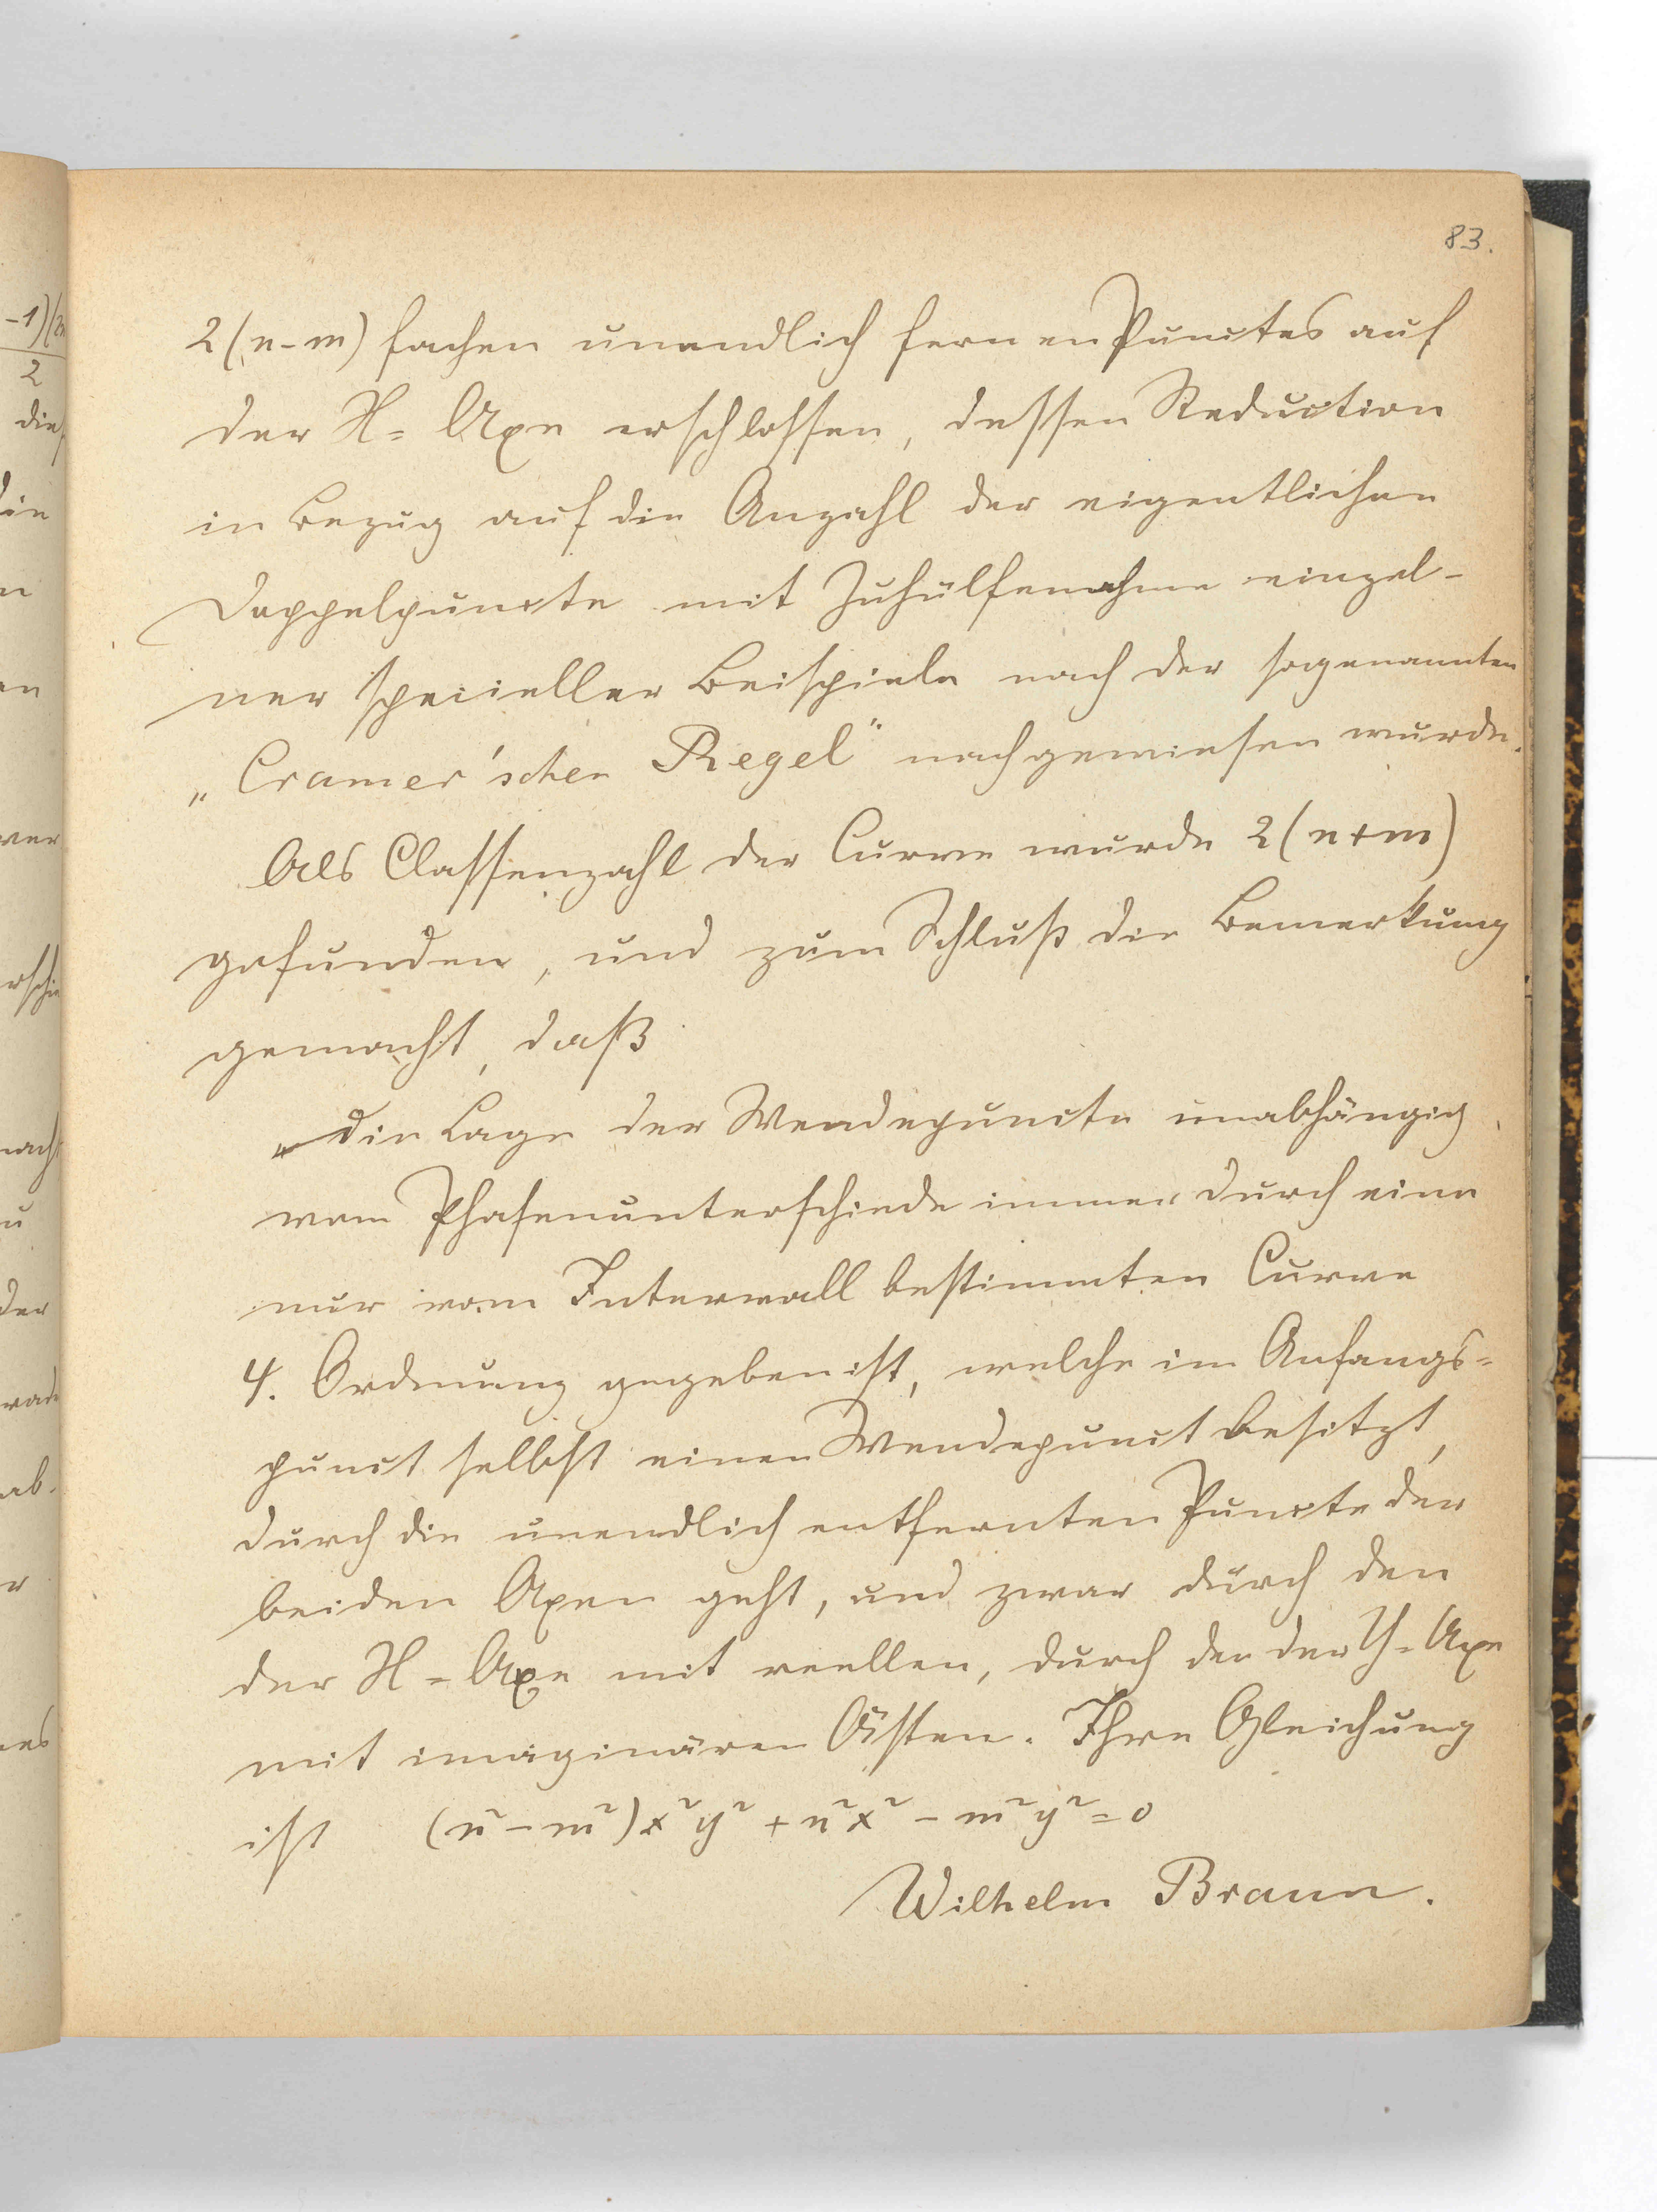 83.
2(n-m) fachen unendlich fernen Punctes auf
der X-Axe erschlossen, dessen Reduction
in Bezug auf die Anzahl der eigentlichen
Doppelpuncte mit Zuhülfenahme einzel-
ner specieller Beispiele nach der sogenannten
„Cramer'schen Regel" nachgewiesen wurde.
Als Classenzahl der Curve wurde 2(n+m)
gefunden, und zum Schluß die Bemerkung
gemacht, daß
„die Lage der Wendepuncte unabhängig
vom Phasenunterschiede immer durch eine
nur vom Intervall bestimmten Curve
4. Ordnung gegeben ist, welche im Anfangs-
punct selbst einen Wendepunct besitzt,
durch die unendlich entfernten Puncte der
beiden Axen geht, und zwar durch den
der X-Axe mit reellen, durch den der Y-Axe
mit imaginären Ästen. Ihre Gleichung
ist (n²-m²)x²y² + n²x² - m²y² = 0
Wilhelm Braun.